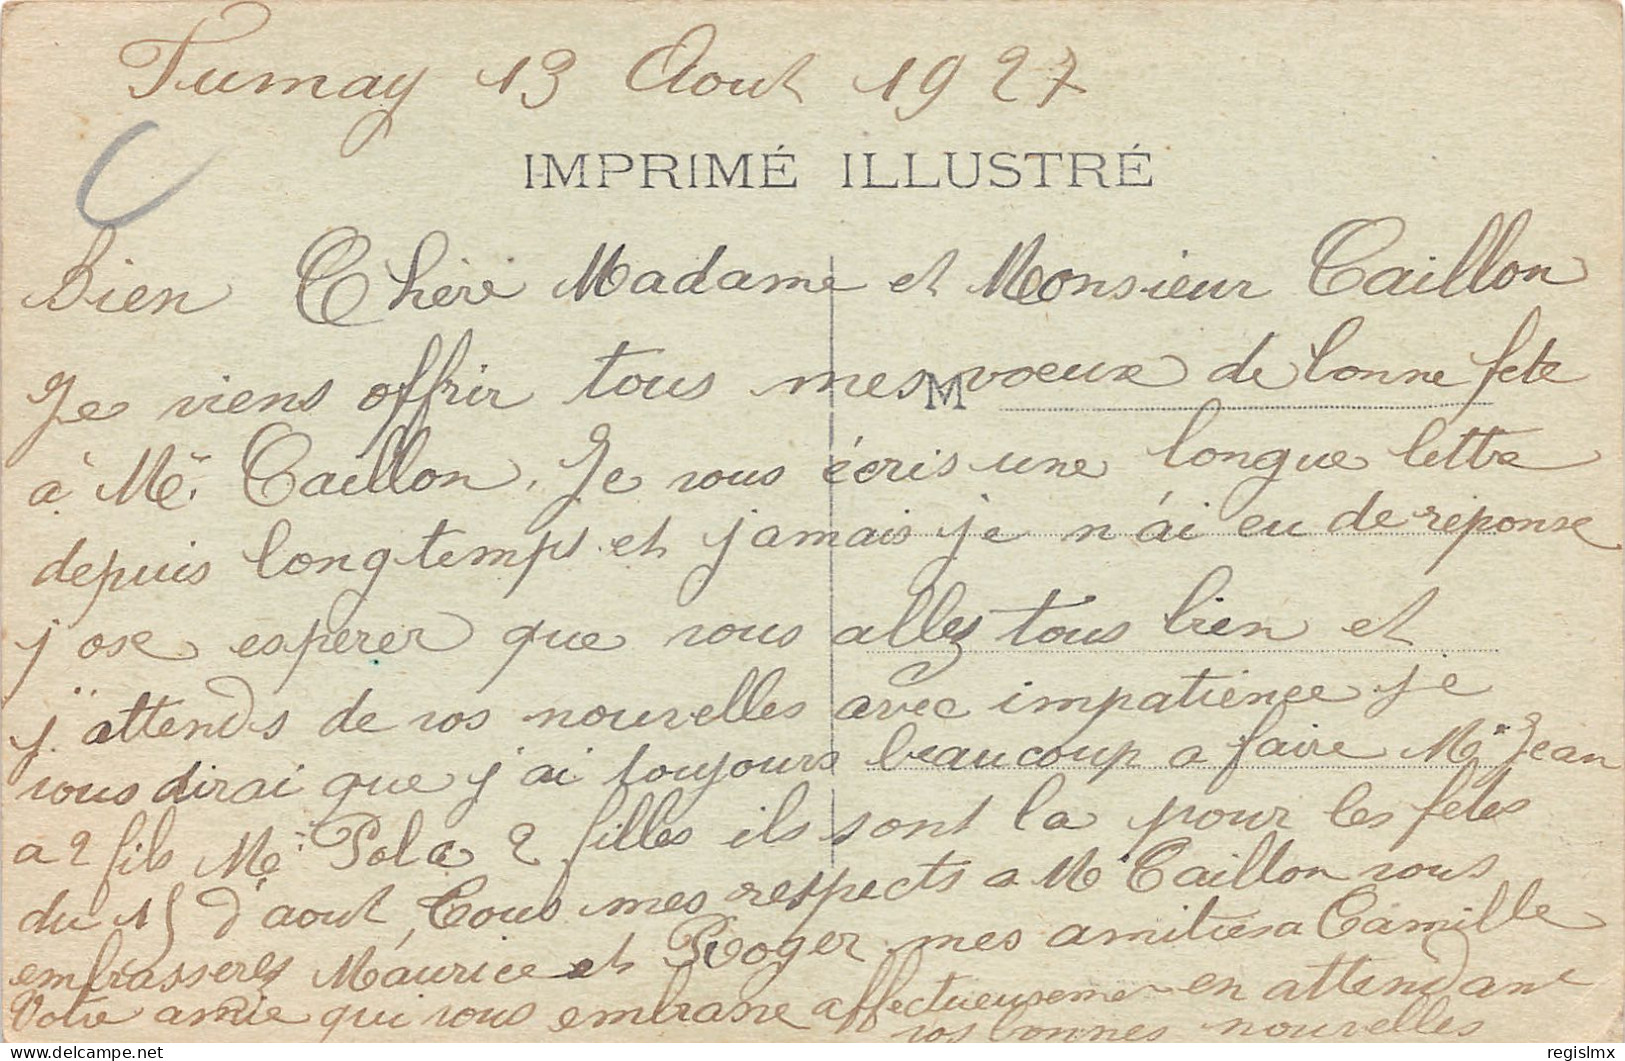 Fumay 13 Aout 1927
IMPRIMÉ ILLUSTRÉ
Bien Chère Madame et Monsieur Caillon
Je viens offrir tous mes voeux de bonne fete
M
à Me Caillon. Je vous écris une longue lettre
depuis longtemps et jamais je n'ai eu de réponse
j ose esperer que vous allez tous bien et
j'attends de vos nouvelles avec impatience je
vous dirai que j'ai toujours beaucoup a faire Mr Jean
a 2 fils Mr Pol a 2 filles ils sont la pour les fetes
du 15 d'aout, Tous mes respects a Mr Caillon vous
embrasserez Maurice et Roger mes amities a Camille
Votre amie qui vous embrasse affectueusement en attendant
vos bonnes nouvelles
delcampe.net
regislmx